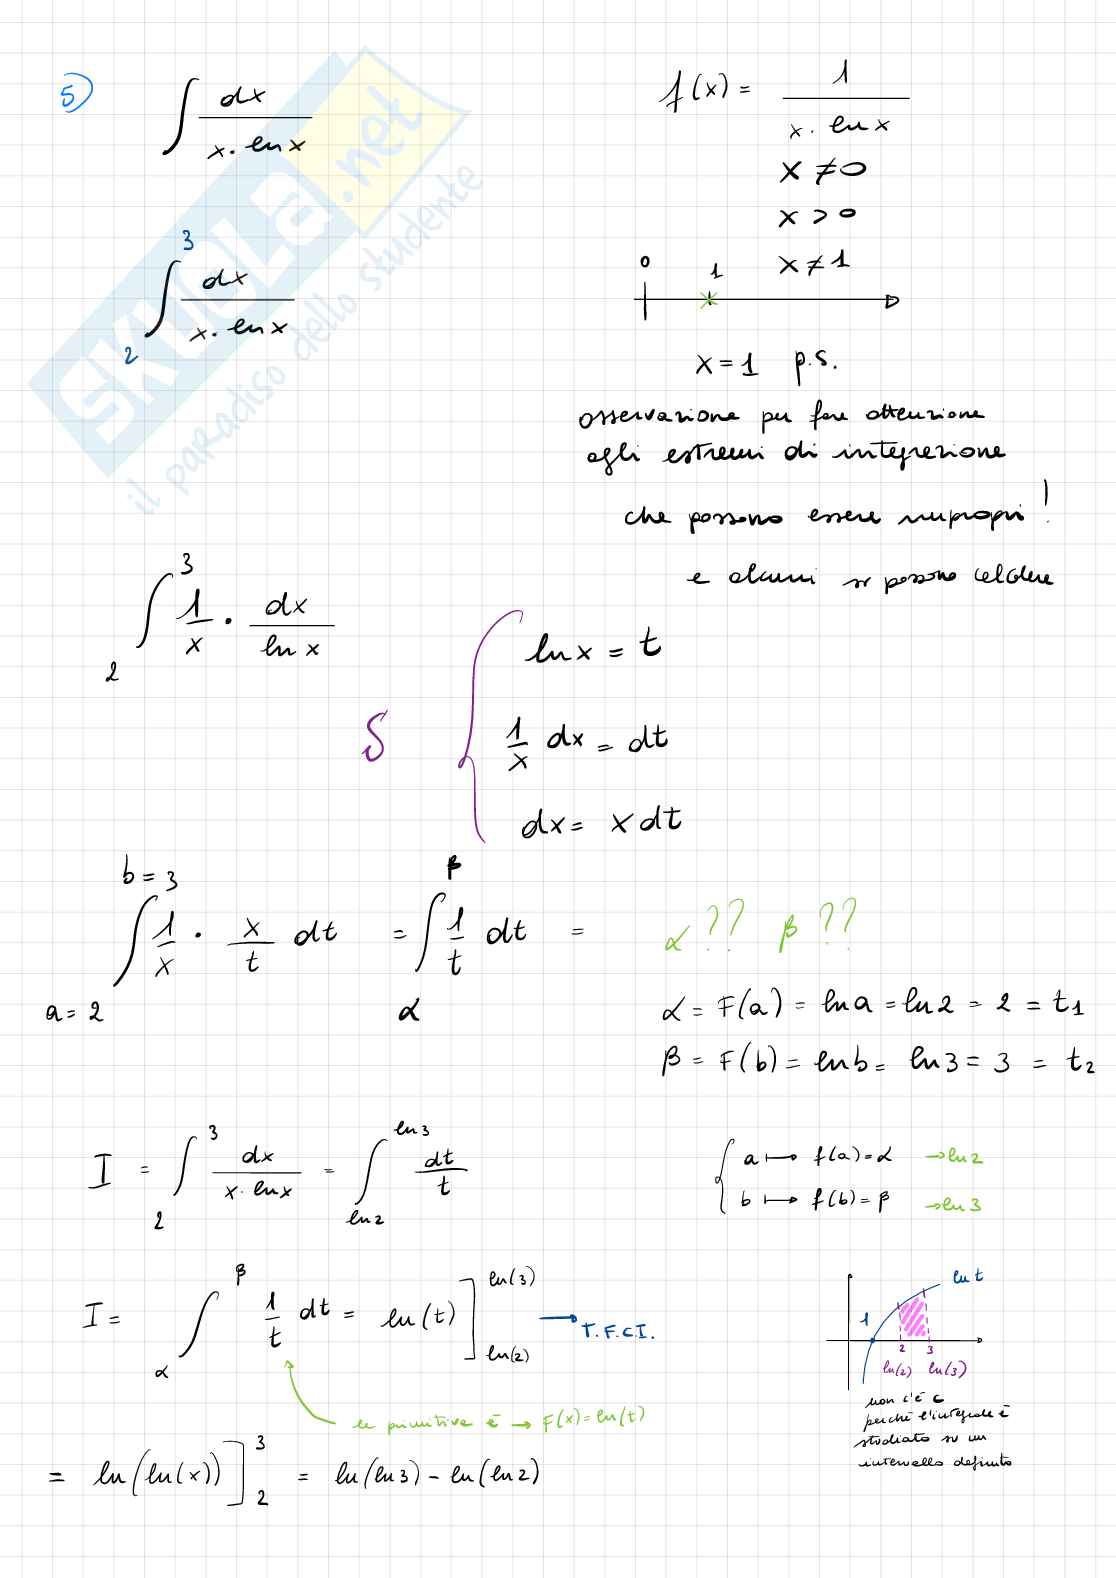 5)
∫ dx / (x · ln x)
f(x) = 1 / (x · ln x)
x ≠ 0
x > 0
x ≠ 1
∫₂³ dx / (x · ln x)
0 1
x = 1 p.s.
osservazione per fare attenzione
agli estremi di integrazione
che possono essere impropri !
e alcuni si possono
SKUOLA.net
il paradiso dello studente
∫₂³ 1/x · dx / ln x
S { ln x = t
1/x dx = dt
dx = x dt
b = 3
β
∫ 1/x · x/t dt = ∫ 1/t dt =
a = 2
α
α ?? β ??
α = F(a) = ln a = ln 2 = 2 = t₁
β = F(b) = ln b = ln 3 = 3 = t₂
I = ∫₂³ dx / (x · ln x) = ∫_{ln 2}^{ln 3} dt / t
{ a ↦ f(a) = α → ln 2
b ↦ f(b) = β → ln 3
I = ∫_α^β 1/t dt = ln(t) ]_{ln(2)}^{ln(3)} → T.F.C.I.
la primitiva è → F(x) = ln(t)
ln t
1
2 3
ln(2) ln(3)
non c'è c
perché l'integrale è
studiato su un
intervallo definito
= ln(ln(x)) ]₂³ = ln(ln 3) − ln(ln 2)